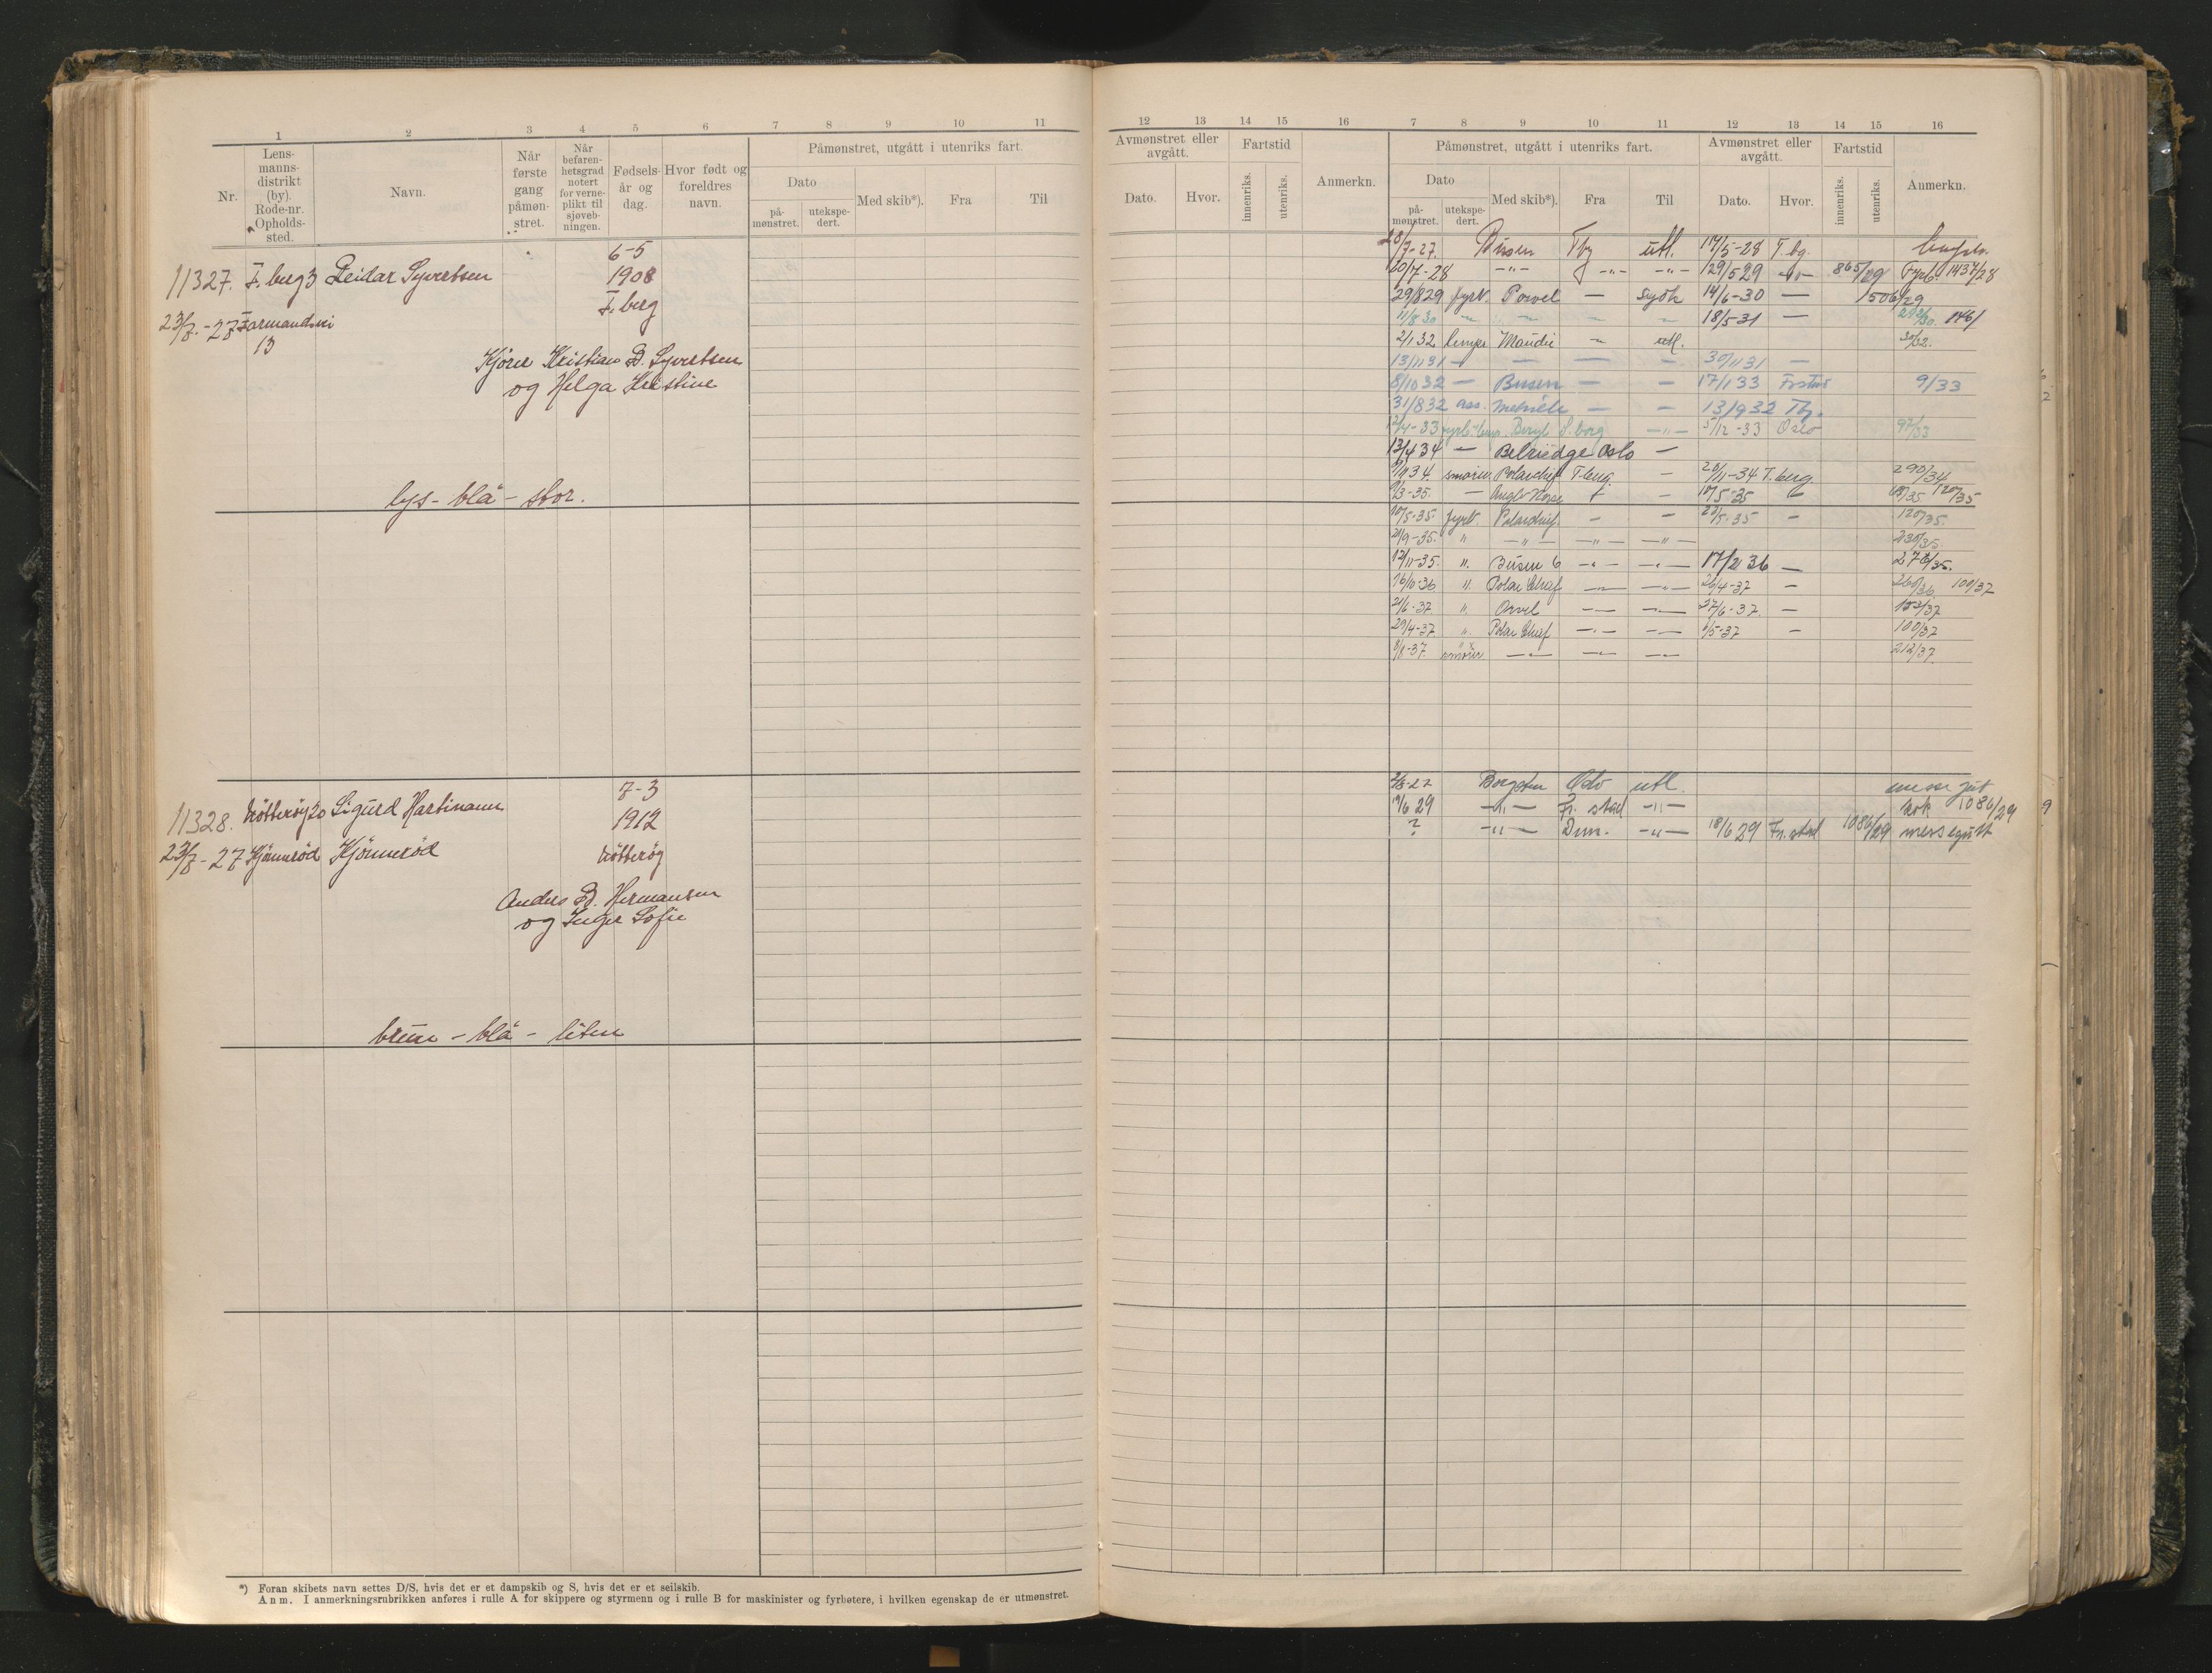 1 2 3 4 5 6 7 8 9 10 11
Nr.
Lens-
manns-
distrikt
(by).
Rode-nr.
Opholds-
sted.
Navn.
Når
første
gang
påmøn-
stret.
Når
befaren-
hetsgrad
notert
for verne-
plikt til
sjøveb-
ningen.
Fødsels-
år og
dag.
Hvor født og
foreldres
navn.
Påmønstret, utgått i utenriks fart.
Dato
på-
mønstret.
utekspe-
dert.
Med skib*).
Fra
Til
11327. T.berg 3 Reidar Syvertsen
6-5
1908
T.berg
23/7.-27
13
Kristian B. Syvertsen
og Helga Kristine
lys - blå - stor.
11328. Nøtterøy 20 Sigurd Hartmann
7-3
1912
Nøtterøy
23/7-27 Kjønnerød Kjønnerød
Anders B. Hermansen
og Inger Sofie
brun - blå - liten
*) Foran skibets navn settes D/S, hvis det er et dampskib og S, hvis det er et seilskib.
Anm. I anmerkningsrubrikken anføres i rulle A for skippere og styrmenn og i rulle B for maskinister og fyrbøtere, i hvilken egenskap de er utmønstret.
12 13 14 15 16 7 8 9 10 11 12 13 14 15 16
Avmønstret eller
avgått.
Dato.
Hvor.
Fartstid
innenriks.
utenriks.
Anmerkn.
Påmønstret, utgått i utenriks fart.
Dato
på-
mønstret.
utekspe-
dert.
Med skib*).
Fra
Til
Avmønstret eller
avgått.
Dato.
Hvor.
Fartstid
innenriks.
utenriks.
Anmerkn.
/7-27. Busen Tbg utl. 14/5-28 T.bg.
20/7-28 -"- -"- -"- 29/5 29 -"- 865/29 Fyrb. 1437/28
29/8 29 fyrb. Orwell — sydh 14/6-30 — 1506/29
11/8 30 " " — — 18/5 31 —
2/1 32 lemper Maudie — utl. 30/32.
13/11 31 — — — — 30/11 31 —
8/10 32 — Busen — — 17/1 33 9/33
31/8 32 ass. — — 13/9 32 Tbg.
12/4-33 Beryl S.borg -"- 5/12-33 Oslo 97/33
13/4 34 — Belridge Oslo —
34. smører Polarchief T.berg. — 20/11-34 T.berg. 290/34
/3-35. — Anglo Norse — — 10/5-35 120/35
10/5-35. fyrb. Polarchief. — — 22/5-35 — 120/35.
21/9-35. " -"- -"- -"- 230/35.
12/11-35. " Busen 6 -"- -"- 17/2 36 — 278/35.
16/10-36. " Polar Chief -"- -"- 26/4-37 — 260/36 100/37
21/6-37. " Orwell -"- -"- 27/6-37 — 152/37
29/4-37 " Polar Chief -"- -"- 6/5-37 — 100/37
8/8-37. smører -"- -"- -"- 212/37.
2/8-27 Borgsten Oslo utl. messegut
19/6 29 -"- Fr.stad -"- kok 1086/29
? -"- Dun. -"- 18/6 29 Fr.stad 1086/29 messegutt
9
2